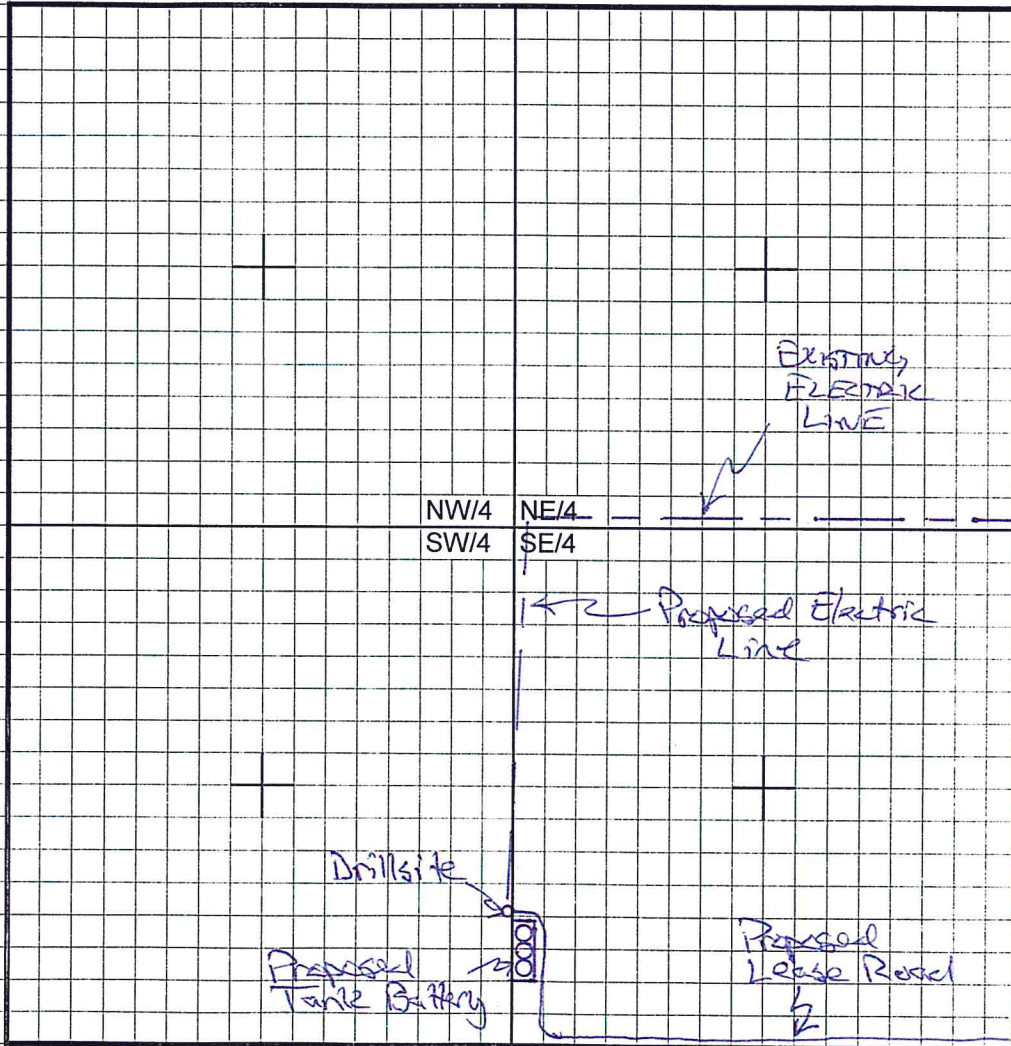 EXISTING
ELECTRIC
LINE
NW/4 NE/4
SW/4 SE/4
Proposed Electric
Line
Drillsite
Proposed
Tank Battery
Proposed
Lease Road